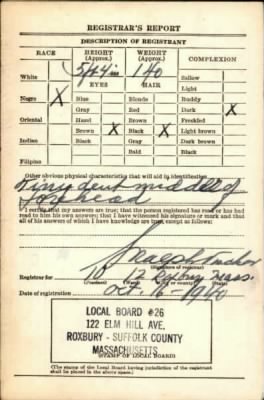 REGISTRAR'S REPORT
DESCRIPTION OF REGISTRANT
RACE HEIGHT (Approx.) WEIGHT (Approx.) COMPLEXION
5/4 in 140
White Sallow
EYES HAIR Light
Negro X Blue Blonde Ruddy
Gray Red Dark X
Oriental Hazel Brown Freckled
Brown X Black X Light brown
Indian Black Gray Dark brown
Bald Black
Filipino
Other obvious physical characteristics that will aid in identification
middle of
I certify that my answers are true; that the person registered has read or has had
read to him his own answers; that I have witnessed his signature or mark and that
all of his answers of which I have knowledge are true, except as follows:
Ralph
(Signature of registrar)
Registrar for 10 12 Roxbury Mass.
(Precinct) (Ward) (City or county) (State)
Date of registration Oct. 16 - 1940
LOCAL BOARD #26
122 ELM HILL AVE.
ROXBURY - SUFFOLK COUNTY
MASSACHUSETTS
(STAMP OF LOCAL BOARD)
(The stamp of the Local Board having jurisdiction of the registrant
shall be placed in the above space.)